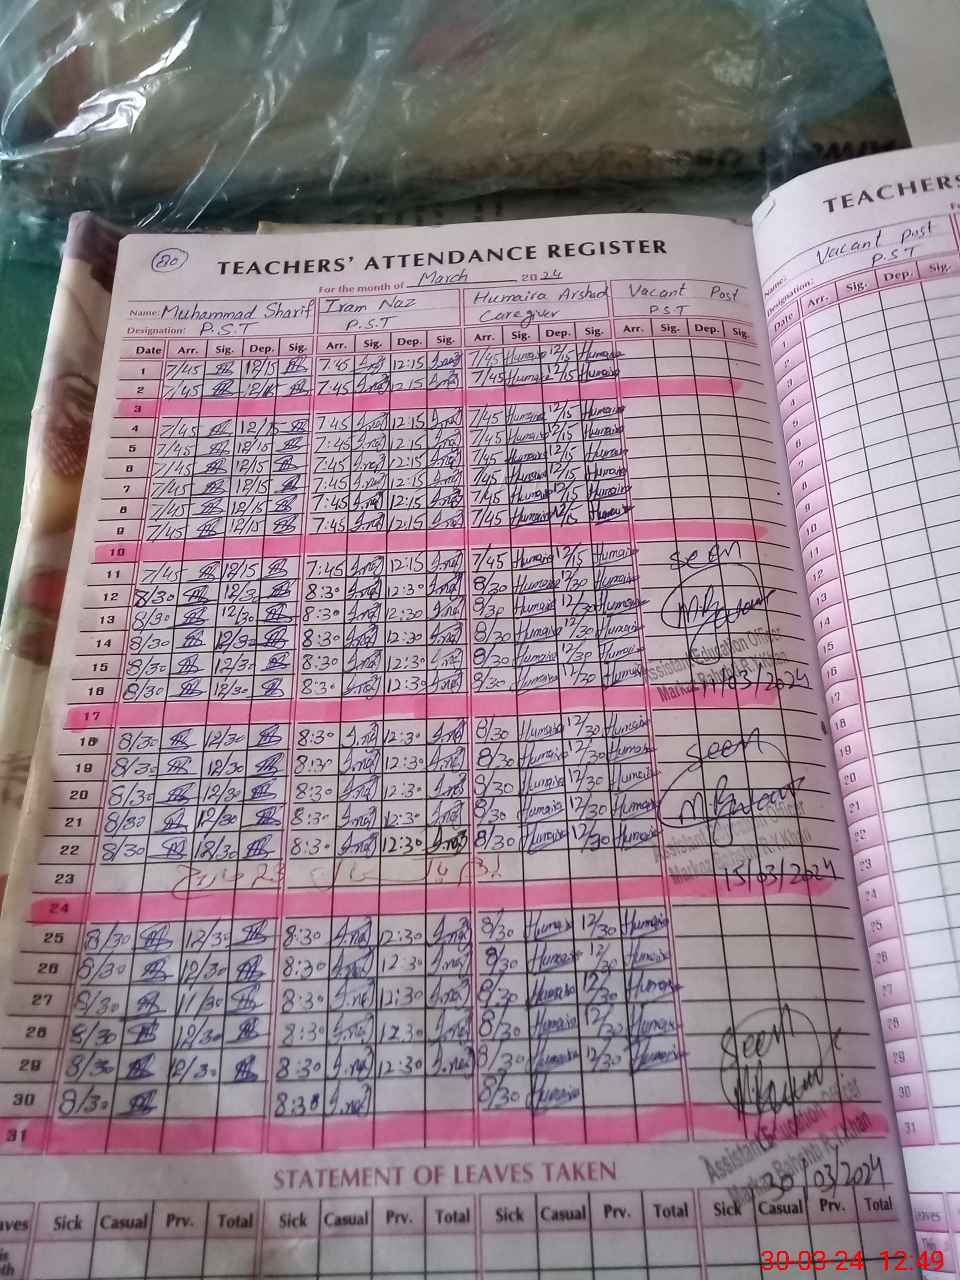 80
TEACHERS' ATTENDANCE REGISTER
For the month of March 2024
Name: Muhammad Sharif Iram Naz Humaira Arshad Vacant Post
Designation: P.S.T P.S.T Caregiver PST
Date Arr. Sig. Dep. Sig. Arr. Sig. Dep. Sig. Arr. Sig. Dep. Sig. Arr. Sig. Dep. Sig.
1 7/45 12/15 7:45 12:15 7/45 Humaira 12/15 Humaira
2 7/45 12/15 7:45 12:15 7/45 Humaira 12/15 Humaira
3
4 7/45 12/15 7:45 12:15 7/45 Humaira 12/15 Humaira
5 7/45 12/15 7:45 12:15 7/45 Humaira 12/15 Humaira
6 7/45 12/15 7:45 12:15 7/45 Humaira 12/15 Humaira
7 7/45 12/15 7:45 12:15 7/45 Humaira 12/15 Humaira
8 7/45 12/15 7:45 12:15 7/45 Humaira 12/15 Humaira
9 7/45 12/15 7:45 12:15 7/45 Humaira 12/15 Humaira
10
11 7/45 12/15 7:45 12:15 7/45 Humaira 12/15 Humaira seen
12 8/30 12/30 8:30 12:30 8/30 Humaira 12/30 Humaira
13 8/30 12/30 8:30 12:30 8/30 Humaira 12/30 Humaira
14 8/30 12/30 8:30 12:30 8/30 Humaira 12/30 Humaira
15 8/30 12/30 8:30 12:30 8/30 Humaira 12/30 Humaira Assistant Education Officer
16 8/30 12/30 8:30 12:30 8/30 Humaira 12/30 Humaira Markaz Bahishti R.Y.Khan
11/03/2024
17
18 8/30 12/30 8:30 12:30 8/30 Humaira 12/30 Humaira seen
19 8/30 12/30 8:30 12:30 8/30 Humaira 12/30 Humaira
20 8/30 12/30 8:30 12:30 8/30 Humaira 12/30 Humaira
21 8/30 12/30 8:30 12:30 8/30 Humaira 12/30 Humaira
22 8/30 12/30 8:30 12:30 8/30 Humaira 12/30 Humaira Assistant Education Officer
23 Markaz Bahishti R.Y.Khan
15/03/2024
24
25 8/30 12/30 8:30 12:30 8/30 Humaira 12/30 Humaira
26 8/30 12/30 8:30 12:30 8/30 Humaira 12/30 Humaira
27 8/30 11/30 8:30 12:30 8/30 Humaira 12/30 Humaira
28 8/30 12/30 8:30 12:30 8/30 Humaira 12/30 Humaira seen
29 8/30 12/30 8:30 12:30 8/30 Humaira 12/30 Humaira
30 8/30 8:30 8/30 Humaira
31 Assistant Education Officer
Markaz Bahishti R.Y.Khan
30/03/2024
STATEMENT OF LEAVES TAKEN
Sick Casual Prv. Total Sick Casual Prv. Total Sick Casual Prv. Total Sick Casual Prv. Total
TEACHERS
Name: Vacant Post
Designation: P.S.T
Date Arr. Sig. Dep. Sig.
1
2
3
4
5
6
7
8
9
10
11
12
13
14
15
16
17
18
19
20
21
22
23
24
25
26
27
28
29
30
31
Leaves
30-03-24 12:49